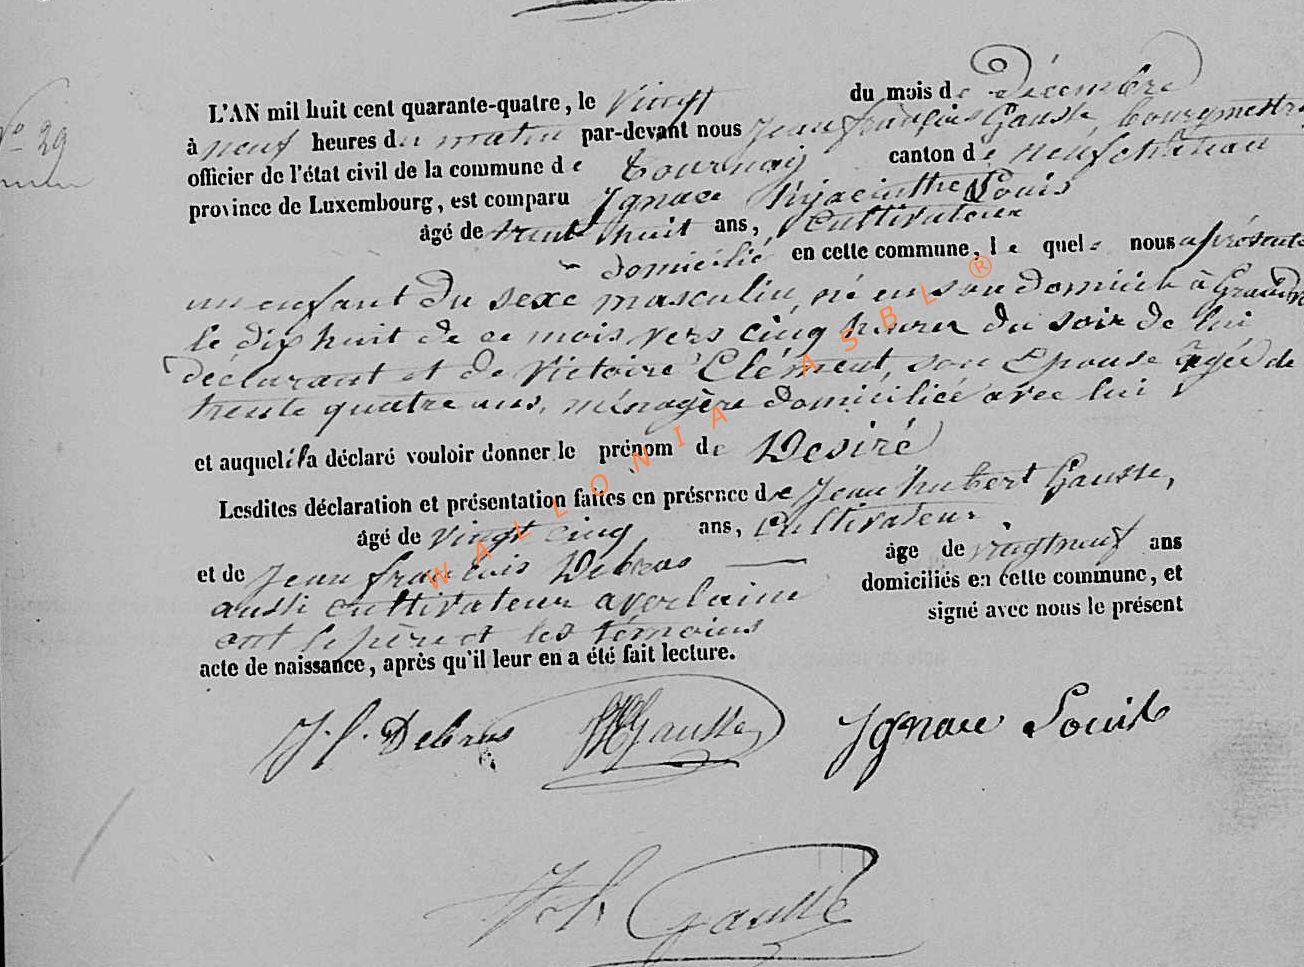 N° 29
L'AN mil huit cent quarante-quatre, le Vingt du mois de Décembre
à neuf heures du matin par-devant nous Jean françois Gausse bourgmestre
officier de l'état civil de la commune de tournay canton de neufchateau
province de Luxembourg, est comparu Ignace hyacinthe Louis
âgé de trente huit ans, Cultivateur
domicilié en cette commune, le quel nous a présenté
un enfant du sexe masculin, né en son domicile à
le dix huit de ce mois vers cinq heures du soir de lui
déclarant et de Victoire Clément, son Epouse âgée de
trente quatre ans, ménagère domiciliée avec lui
et auquel il a déclaré vouloir donner le prénom de Desiré
Lesdites déclaration et présentation faites en présence de Jean hubert Gausse,
âgé de vingt cinq ans, Cultivateur
et de Jean francois Debras âge de vingt neuf ans
aussi cultivateur a verlaine domiciliés en cette commune, et
ont le père et les témoins signé avec nous le présent
acte de naissance, après qu'il leur en a été fait lecture.
J. f. Debras Gausse Ignace Louis
Gausse
WALLONIA ASBL ®